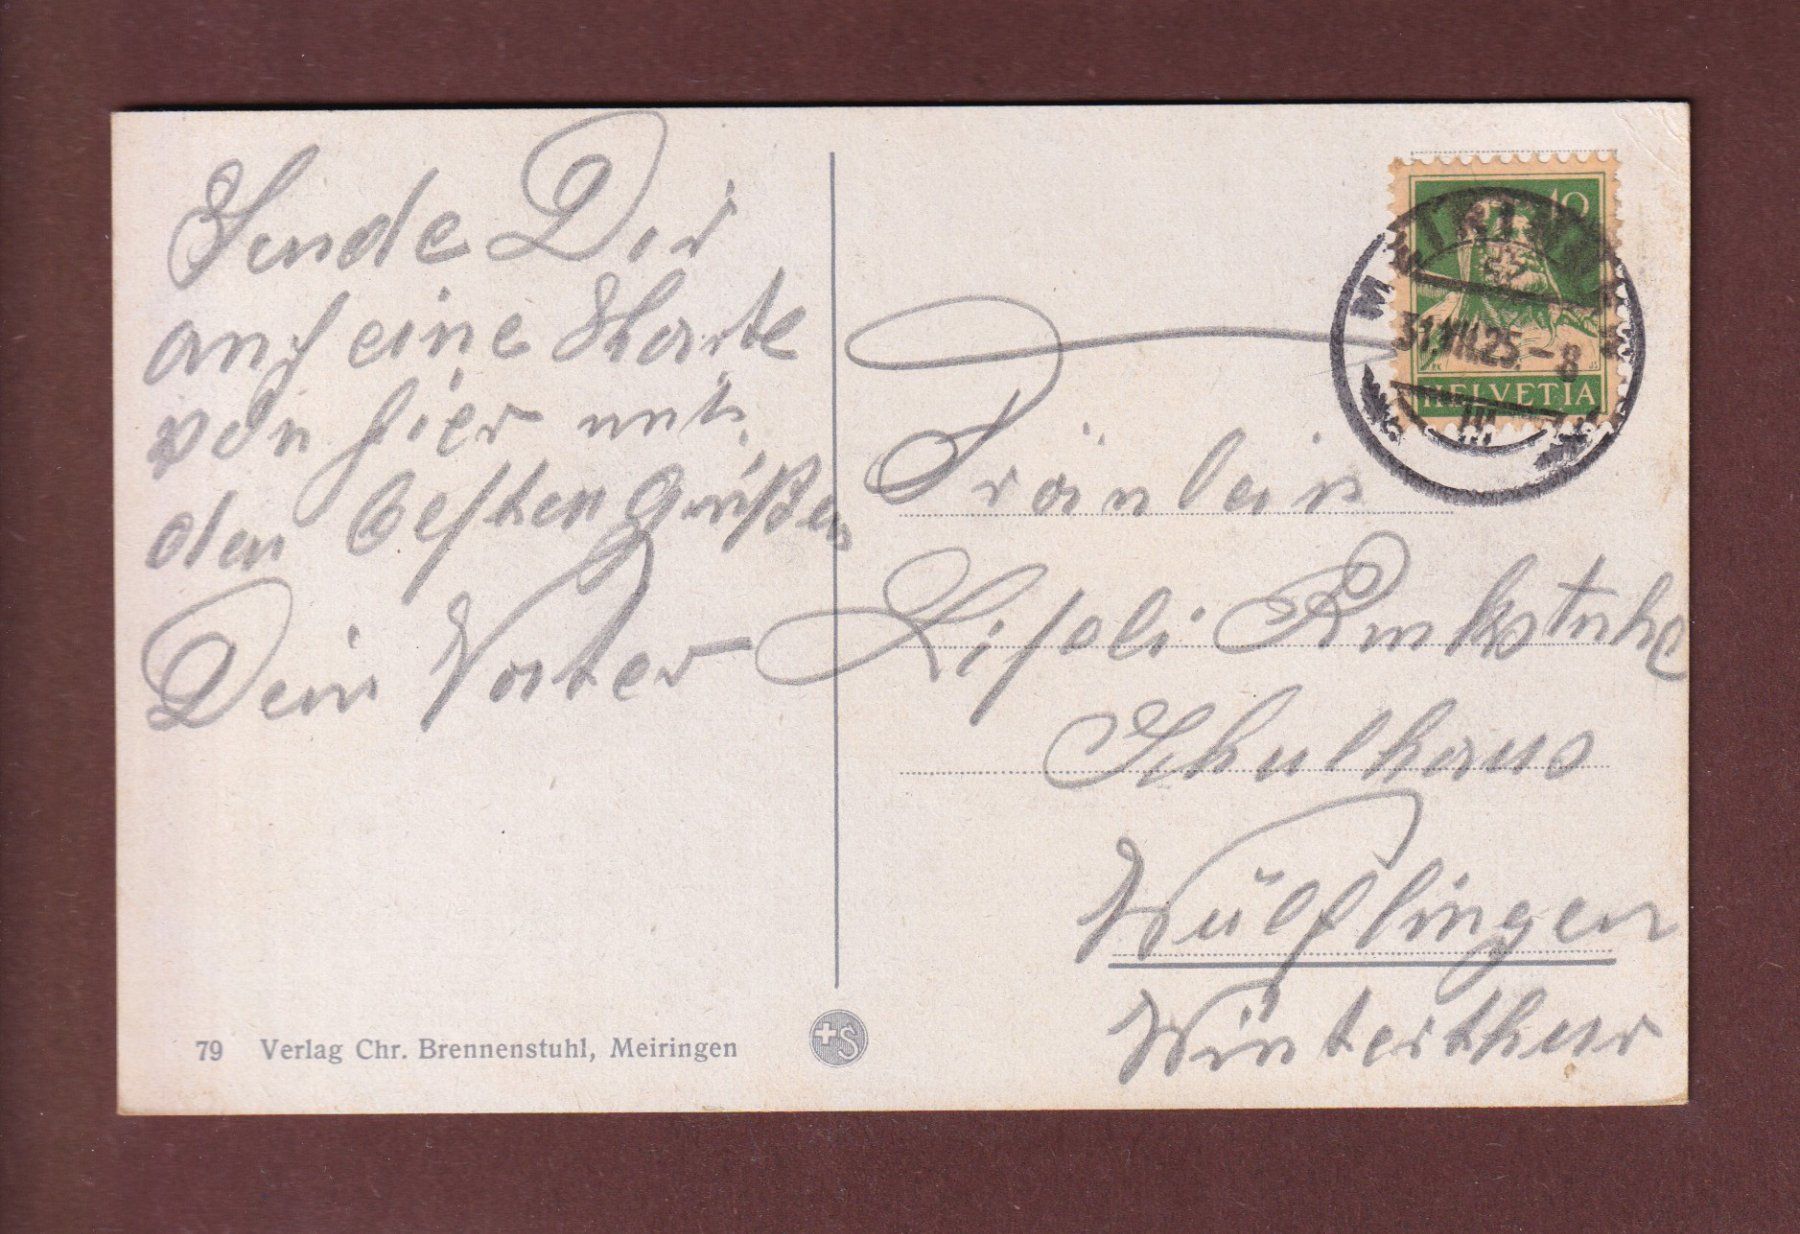 Sende Dir
auch eine Karte
von hier mit
den besten Grüßen
Dein Vater
79 Verlag Chr. Brennenstuhl, Meiringen
S
10
MEIRINGEN
31.VIII.25.-8
HELVETIA
III
Fräulein
Liseli
Schulhaus
Wülflingen
Winterthur